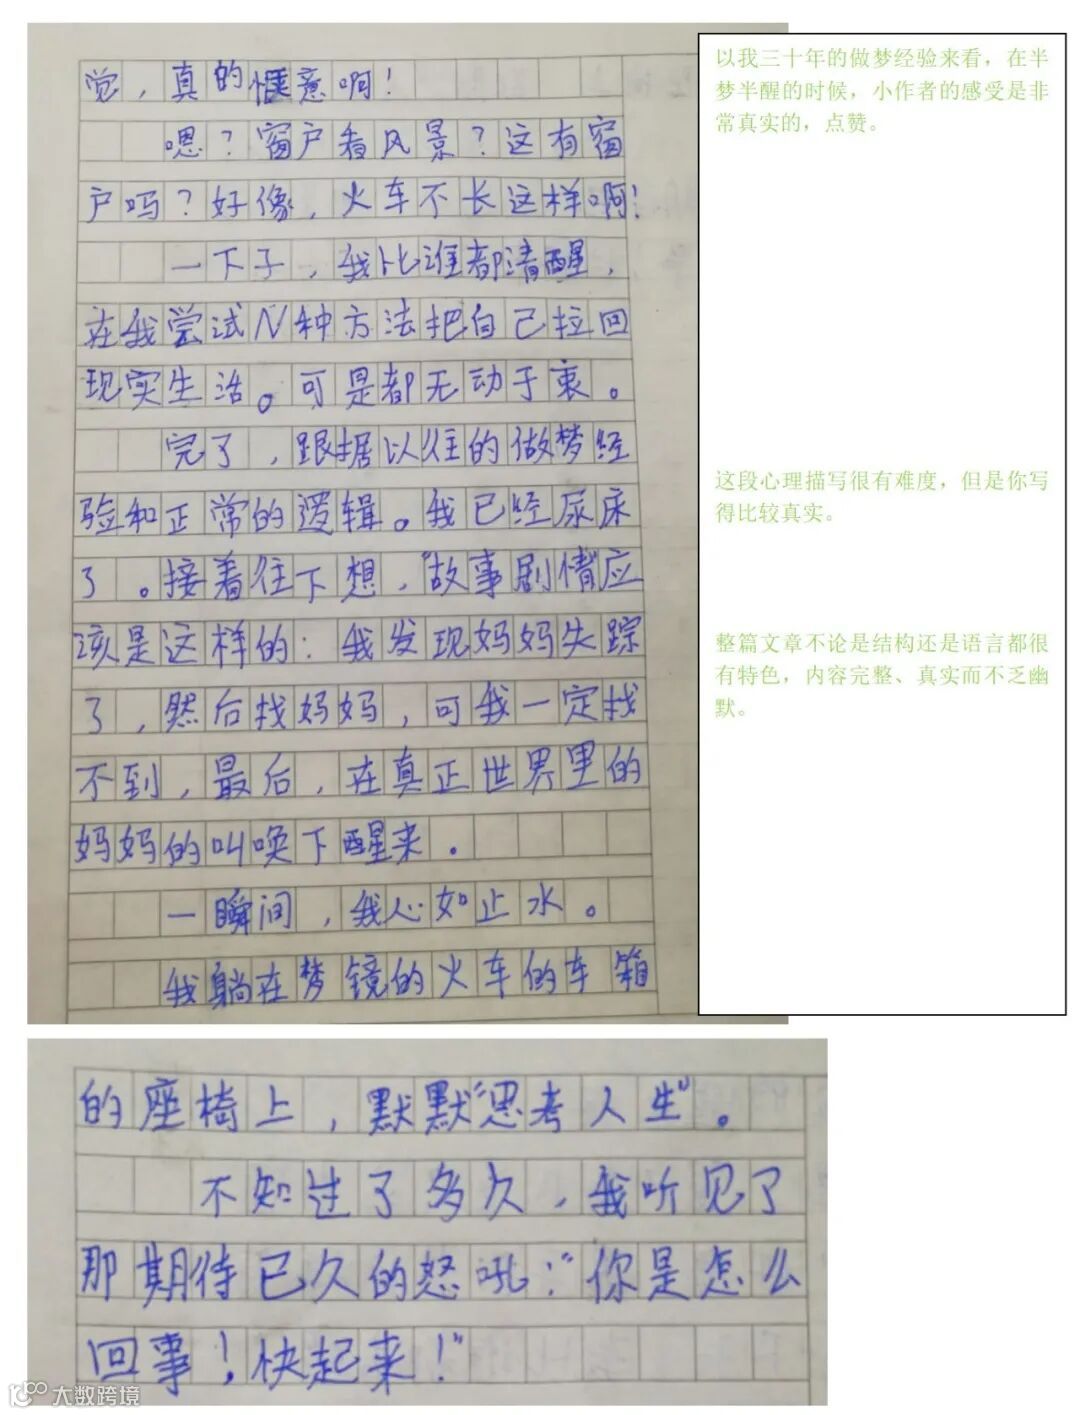 觉，真的惬意啊！
嗯？窗户看风景？这有窗
户吗？好像，火车不长这样啊！
一下子，我比谁都清醒，
在我尝试N种方法把自己拉回
现实生活。可是都无动于衷。
完了，跟据以往的做梦经
验和正常的逻辑。我已经尿床
了。接着往下想，“故事剧情”应
该是这样的：我发现妈妈失踪
了，然后找妈妈，可我一定找
不到，最后，在真正世界里的
妈妈的叫唤下醒来。
一瞬间，我心如止水。
我躺在梦镜的火车的车箱
以我三十年的做梦经验来看，在半
梦半醒的时候，小作者的感受是非
常真实的，点赞。
这段心理描写很有难度，但是你写
得比较真实。
整篇文章不论是结构还是语言都很
有特色，内容完整、真实而不乏幽
默。
的座椅上，默默“思考人生”。
不知过了多久，我听见了
那期待已久的怒吼：“你是怎么
回事！快起来！”
大数跨境